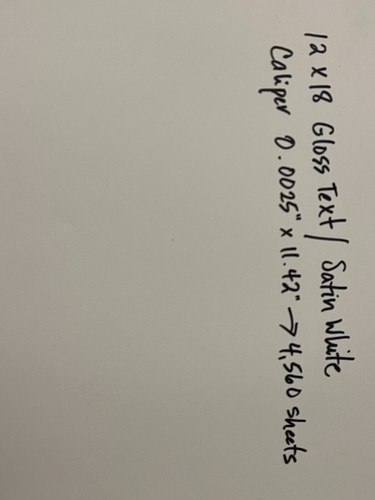 12 x 18 Gloss Text / Satin White
Caliper 0.0025" x 11.42" → 4,560 sheets